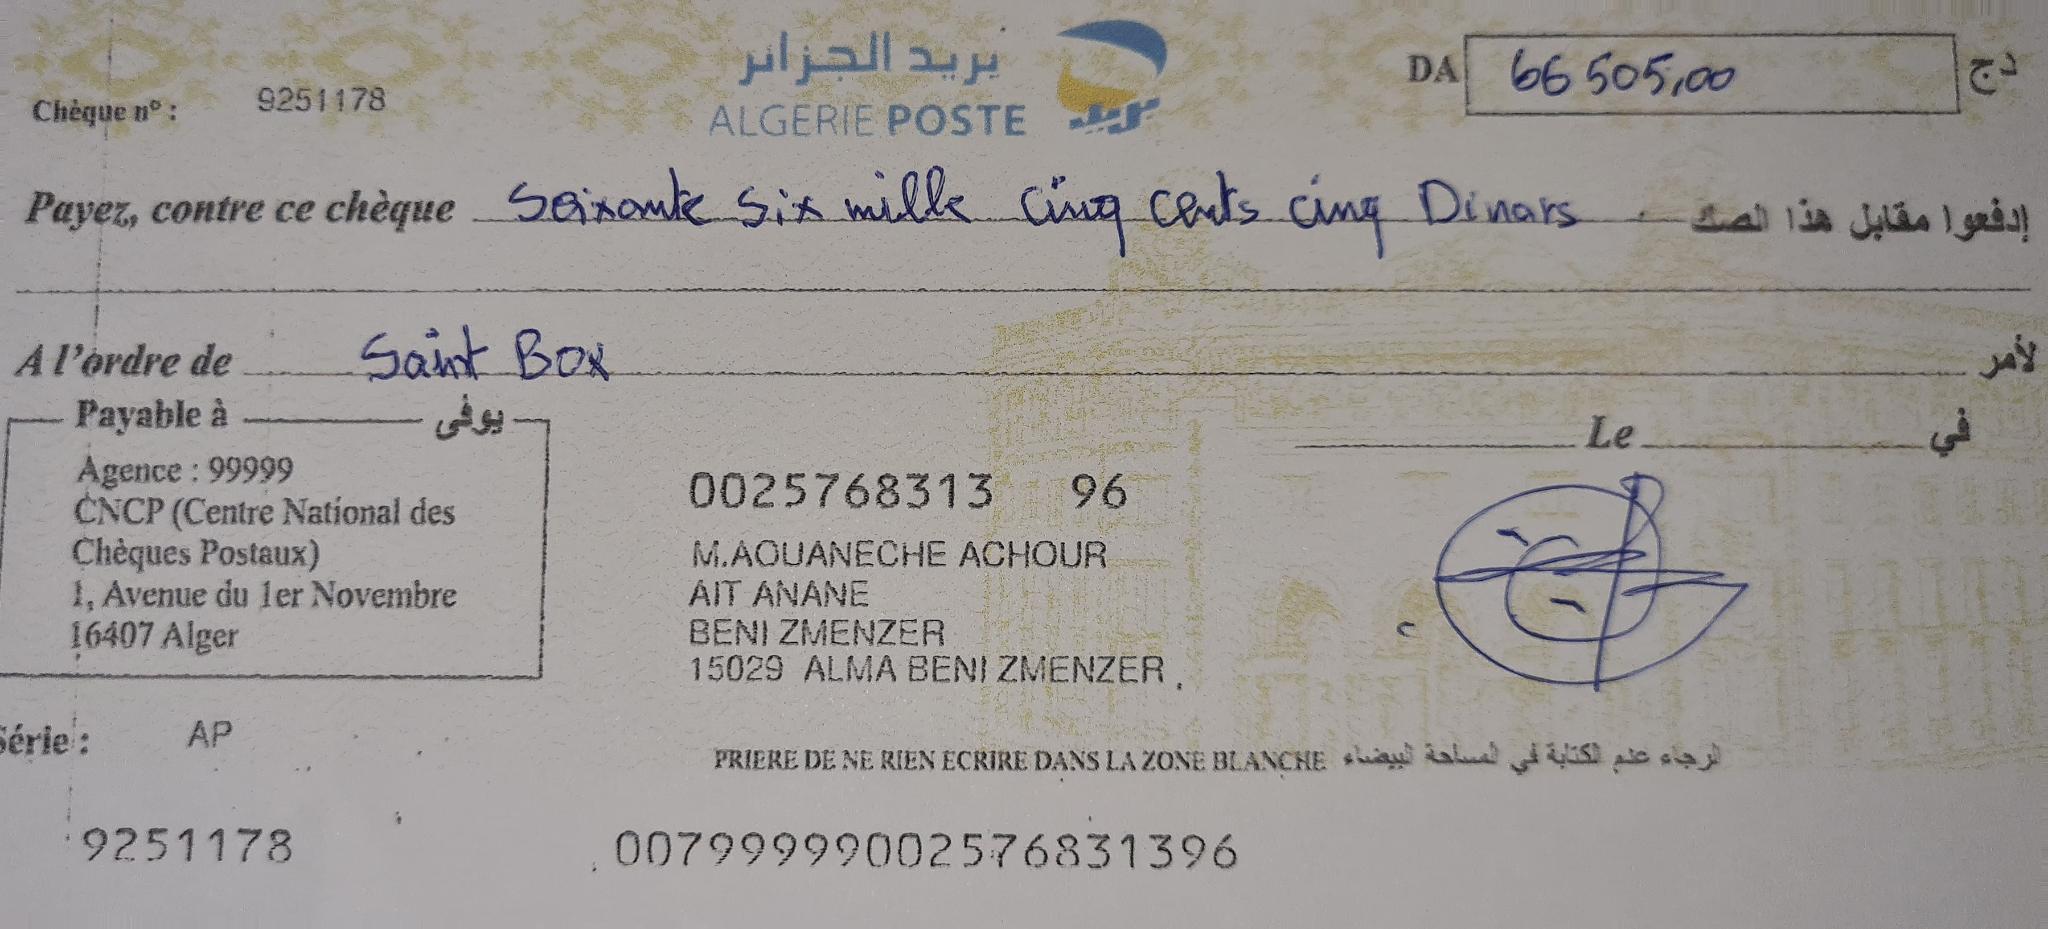 بريد الجزائر
ALGERIE POSTE
بريد
Chèque n° : 9251178
DA 66 505,00 دج
Payez, contre ce chèque Soixante six mille cinq cents cinq Dinars إدفعوا مقابل هذا الصك
A l'ordre de Saint Box لأمر
Payable à يوفى
Agence : 99999
CNCP (Centre National des
Chèques Postaux)
1, Avenue du 1er Novembre
16407 Alger
Le في
0025768313 96
M.AOUANECHE ACHOUR
AIT ANANE
BENI ZMENZER
15029 ALMA BENI ZMENZER
Série : AP
PRIERE DE NE RIEN ECRIRE DANS LA ZONE BLANCHE الرجاء عدم الكتابة في المساحة البيضاء
9251178 00799999002576831396